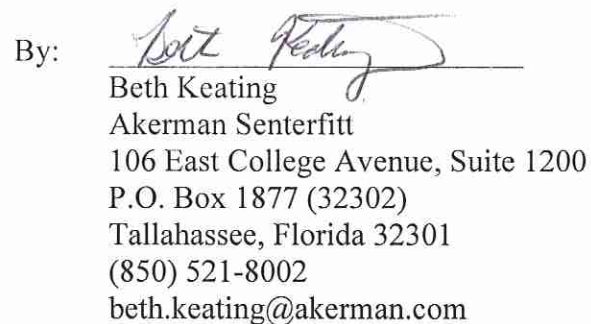 By: Beth Keating
Beth Keating
Akerman Senterfitt
106 East College Avenue, Suite 1200
P.O. Box 1877 (32302)
Tallahassee, Florida 32301
(850) 521-8002
beth.keating@akerman.com